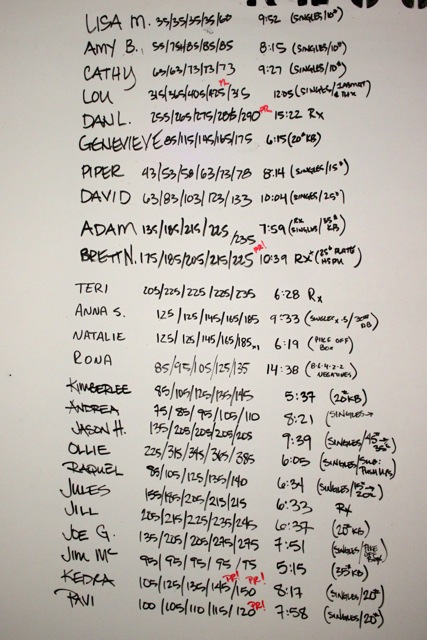 LISA M. 35/35/35/35/60 9:52 (SINGLES/10#)
AMY B. 55/75/85/85/85 8:15 (SINGLES/10#)
CATHY 63/63/73/73/73 9:27 (SINGLES/10#)
LOU 315/365/405/425/315 PR 12:05 (SINGLES/
DAN L. 255/265/275/285/290 PR 15:22 Rx
GENEVIEVE 85/115/145/165/175 6:15 (20#KB)
PIPER 43/53/58/63/73/78 8:14 (SINGLES/15#)
DAVID 63/83/103/123/133 10:04 (SINGLES/25#)
ADAM 135/185/215/225/235 7:59 (RX SINGLES/35# KB)
BRETT N. 175/185/205/215/225 PR! 10:39 RX* (25# PLATE HSPU)
TERI 205/225/225/225/235 6:28 Rx
ANNA S. 125/125/145/165/185 9:33 (SINGLES
NATALIE 125/125/145/165/185x1 6:19 (PIKE OFF BOX)
RONA 85/95/105/125/135 14:38 (8-6-4-2-2 NEGATIVES)
KIMBERLEE 85/105/125/135/145 5:37 (20#KB)
ANDREA 75/85/95/105/110 8:21 (SINGLES→
JASON H. 135/205/205/205/205 9:39 (SINGLES/45#→35#)
OLLIE 225/315/345/365/385 6:05 (SINGLES/SUB: PUSHUPS)
RAQUEL 85/105/125/135/140 6:34 (SINGLES/15#→20#)
JULES 155/185/205/215/215 6:33 Rx
JILL 205/215/225/235/245 6:37 (20#KB)
JOE G. 135/205/205/275/275 7:51 (SINGLES/PIKE OFF BOX)
JIM MC 95/95/95/95/95 5:15 (35#KB)
KEDRA 105/125/135/145/150 PR! PR! 8:17 (SINGLES/20#)
PAVI 100/105/110/115/120 PR! 7:58 (SINGLES/20#)